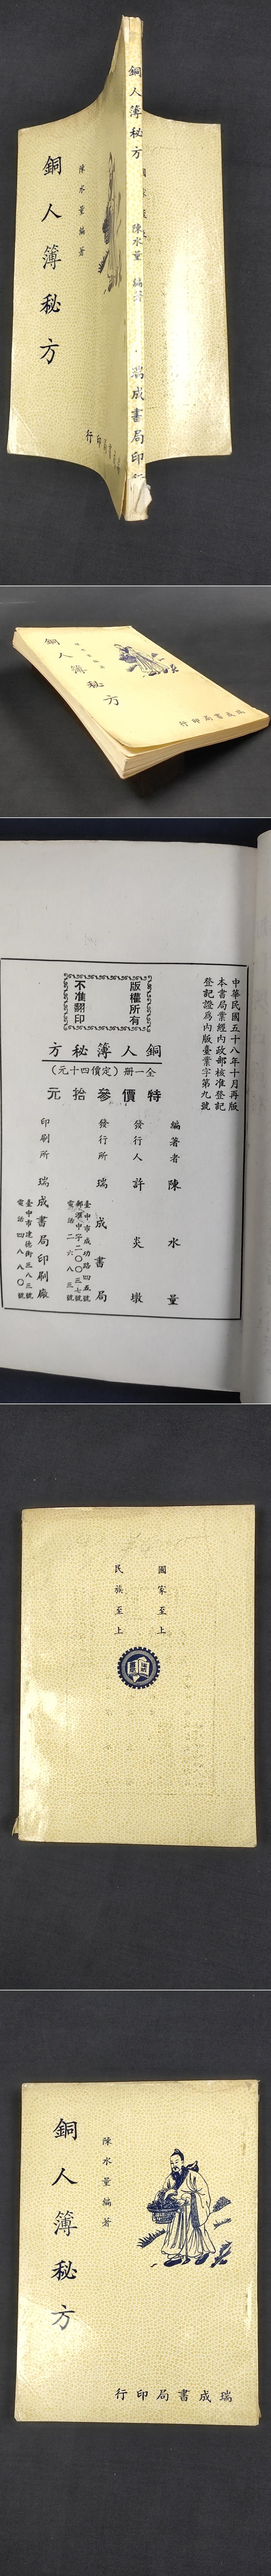 銅人簿秘方
陳水量 編著
瑞成書局印
銅人簿秘方
陳水量編著
銅人簿秘方
瑞成書局印行
中華民國五十八年十月再版
本書局業經內政部核准登記
登記證為內版臺業字第九號
版權所有
不准翻印
銅人簿秘方
全一册（定價四十元）
特價參拾元
編著者 陳水量
發行人 許炎墩
發行所 瑞成書局
臺中市成功路四五號
電話 二六八三號
印刷所 瑞成書局印刷廠
臺中市建德街三八三號
電話 四八八〇號
國家至上
民族至上
銅人簿秘方
陳水量編著
瑞成書局印行